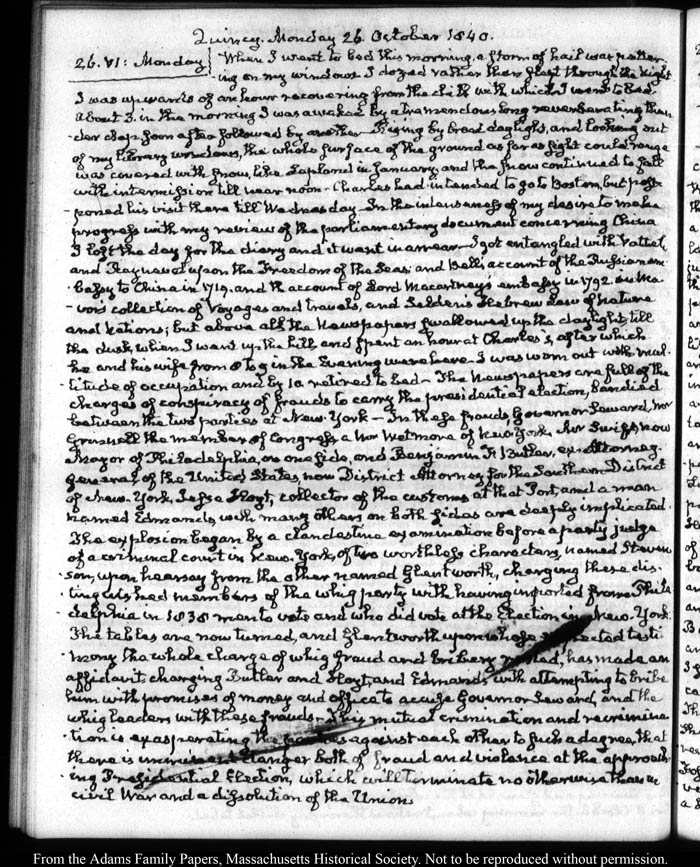 Quincy. Monday 26. October 1840.
26. VI: Monday
When I went to bed this morning, a storm of hail was patter-
ing on my windows. I dozed rather than slept through the night
I was upwards of an hour recovering from the chill with which I went to bed.
about 3. in the morning I was awaked by a tremendous long reverberating thun-
der clap, soon after followed by another. Rising by broad daylight, and looking out
of my library windows, the whole surface of the ground as far as sight could range
was covered with snow, like Lapland in January, and the snow continued to fall
with intermission till near noon. Charles had intended to go to Boston, but post-
poned his visit there till Wednesday. In the intenseness of my desire to make
progress with my review of the parliamentary document concerning China
I lost the day for the diary and it went in arrear. I got entangled with Vattel,
and Rayneval upon the Freedom of the Seas; and Bell's account of the Russian em-
bassy to China in 1719. and the account of Lord Macartney's embassy in 1792. in Ma-
vor's collection of Voyages and travels, and Selden's Hebrew Law of Nature
and Nations; but above all the Newspapers swallowed up the daylight till
the dusk, when I went up the hill and spent an hour at Charles's, after which
he and his wife from 8 to 9 in the Evening were here. I was worn out with mul-
titude of occupation and by 10 retired to bed – The Newspapers are full of the
charges of conspiracy of frauds to carry the presidential election, bandied
between the two parties at New-York – In these frauds, Governor Seward, Mr
Grinnell the member of Congress, a Mr Wetmore of New York, Mr Swift, now
Mayor of Philadelphia, on one side, and Benjamin F. Butler, ex-Attorney-
general of the United States, now District Attorney for the Southern District
of New-York, Jesse Hoyt, collector of the customs at that Port, and a man
named Edmands, with many others on both sides are deeply implicated.
The explosion began by a clandestine examination before a party judge
of a criminal court in New-York, of two worthless characters, named Steven-
son, upon hearsay from the other named Glentworth, charging these dis-
tinguished members of the whig party with having imported from Phila-
delphia in 1838 men to vote and who did vote at the Election in New-York.
The tables are now turned, and Glentworth upon whose testi-
mony the whole charge of whig fraud and bribery, has made an
affidavit charging Butler and Hoyt, and Edmands with attempting to bribe
him with promises of money and office to accuse Governor Seward, and the
whig leaders with these frauds. This mutual crimination and recrimina-
tion is exasperating the parties against each other to such a degree, that
there is danger both of fraud and violence at the approach-
ing Presidential Election, which will terminate no otherwise than in
civil War and a dissolution of the Union.
From the Adams Family Papers, Massachusetts Historical Society. Not to be reproduced without permission.